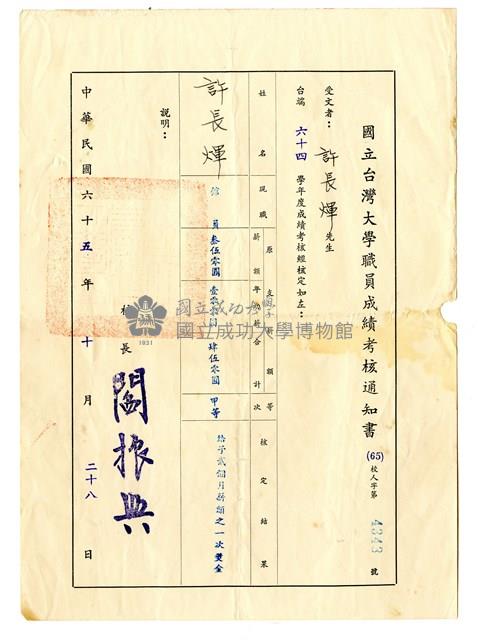 國立台灣大學職員成績考核通知書 (65) 校人字第 4343 號
受文者：許長煇 先生
台端 六十四 學年度成績考核經核定如左：
姓名 現職 原支薪額 薪額 年功薪 合計 等次 核定結果
許長煇 館員 叁伍零圓 壹零零圓 肆伍零圓 甲等 給予貳個月薪額之一次獎金
說明：
校長 閻振興
中華民國六十五年 十 月 二十八 日
國立成功大學
國立成功大學博物館
1931